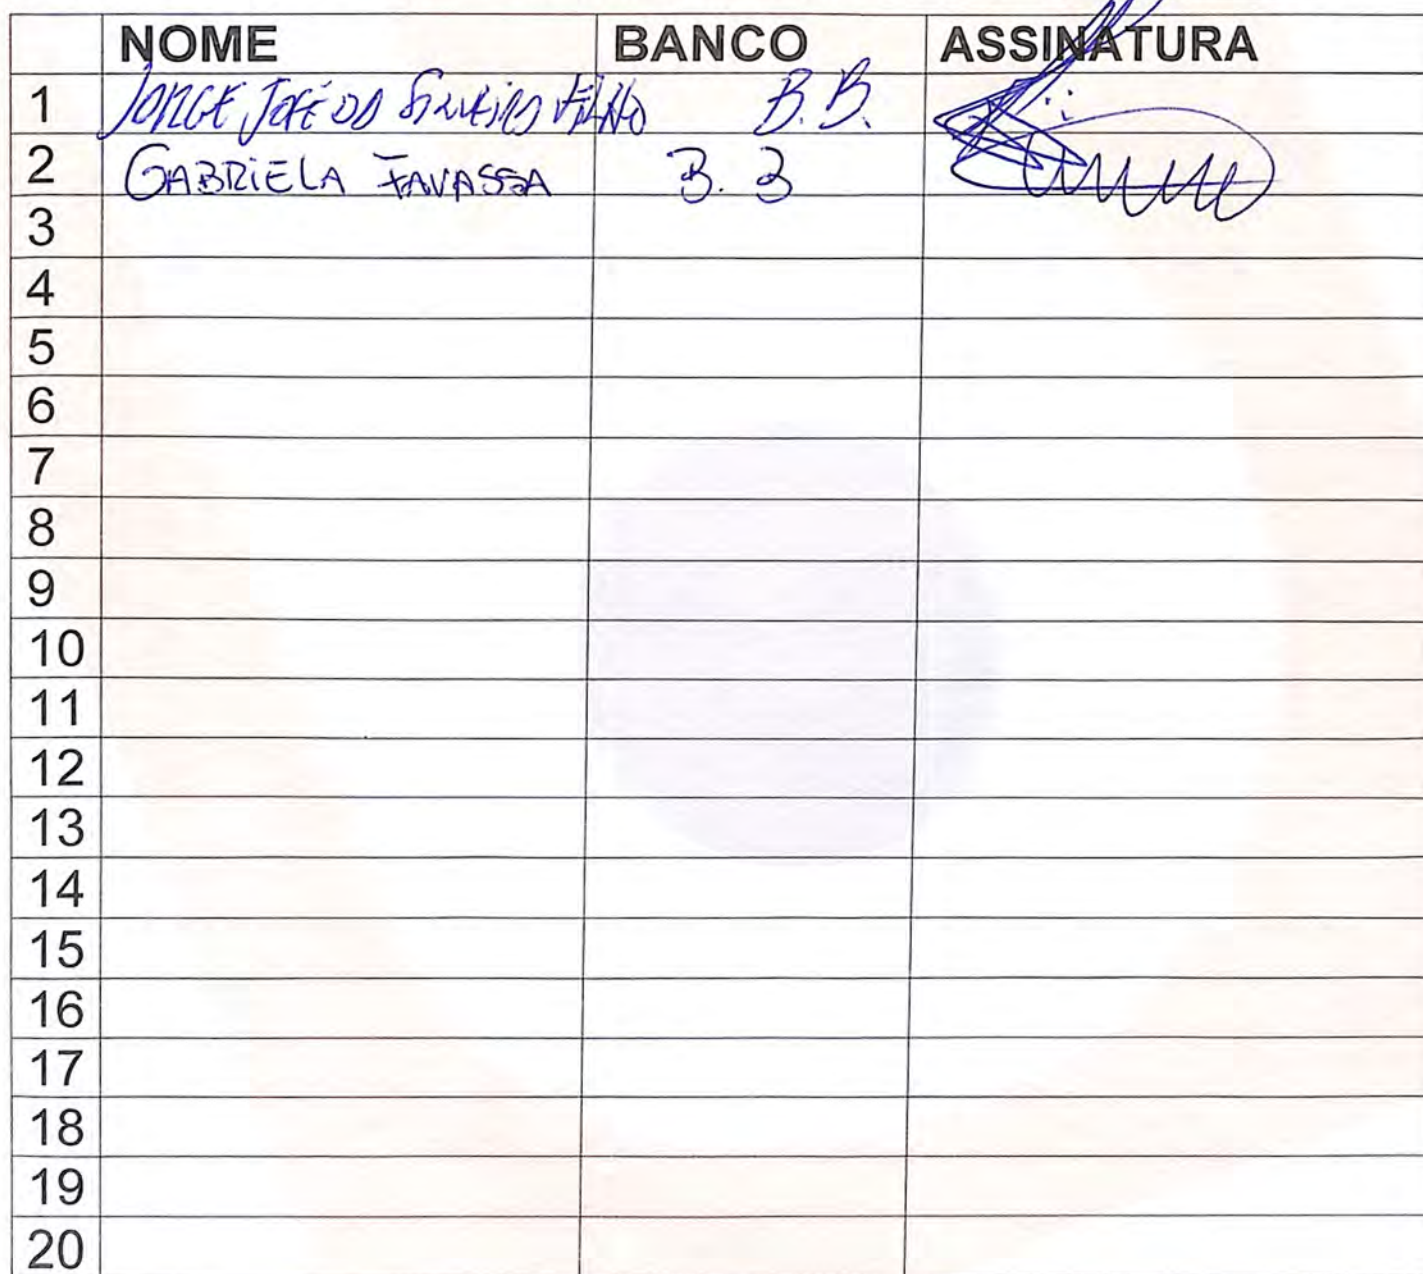 NOME BANCO ASSINATURA
1 JORGE JOSÉ DA FILHO B.B.
2 GABRIELA FAVASSA B.B
3
4
5
6
7
8
9
10
11
12
13
14
15
16
17
18
19
20